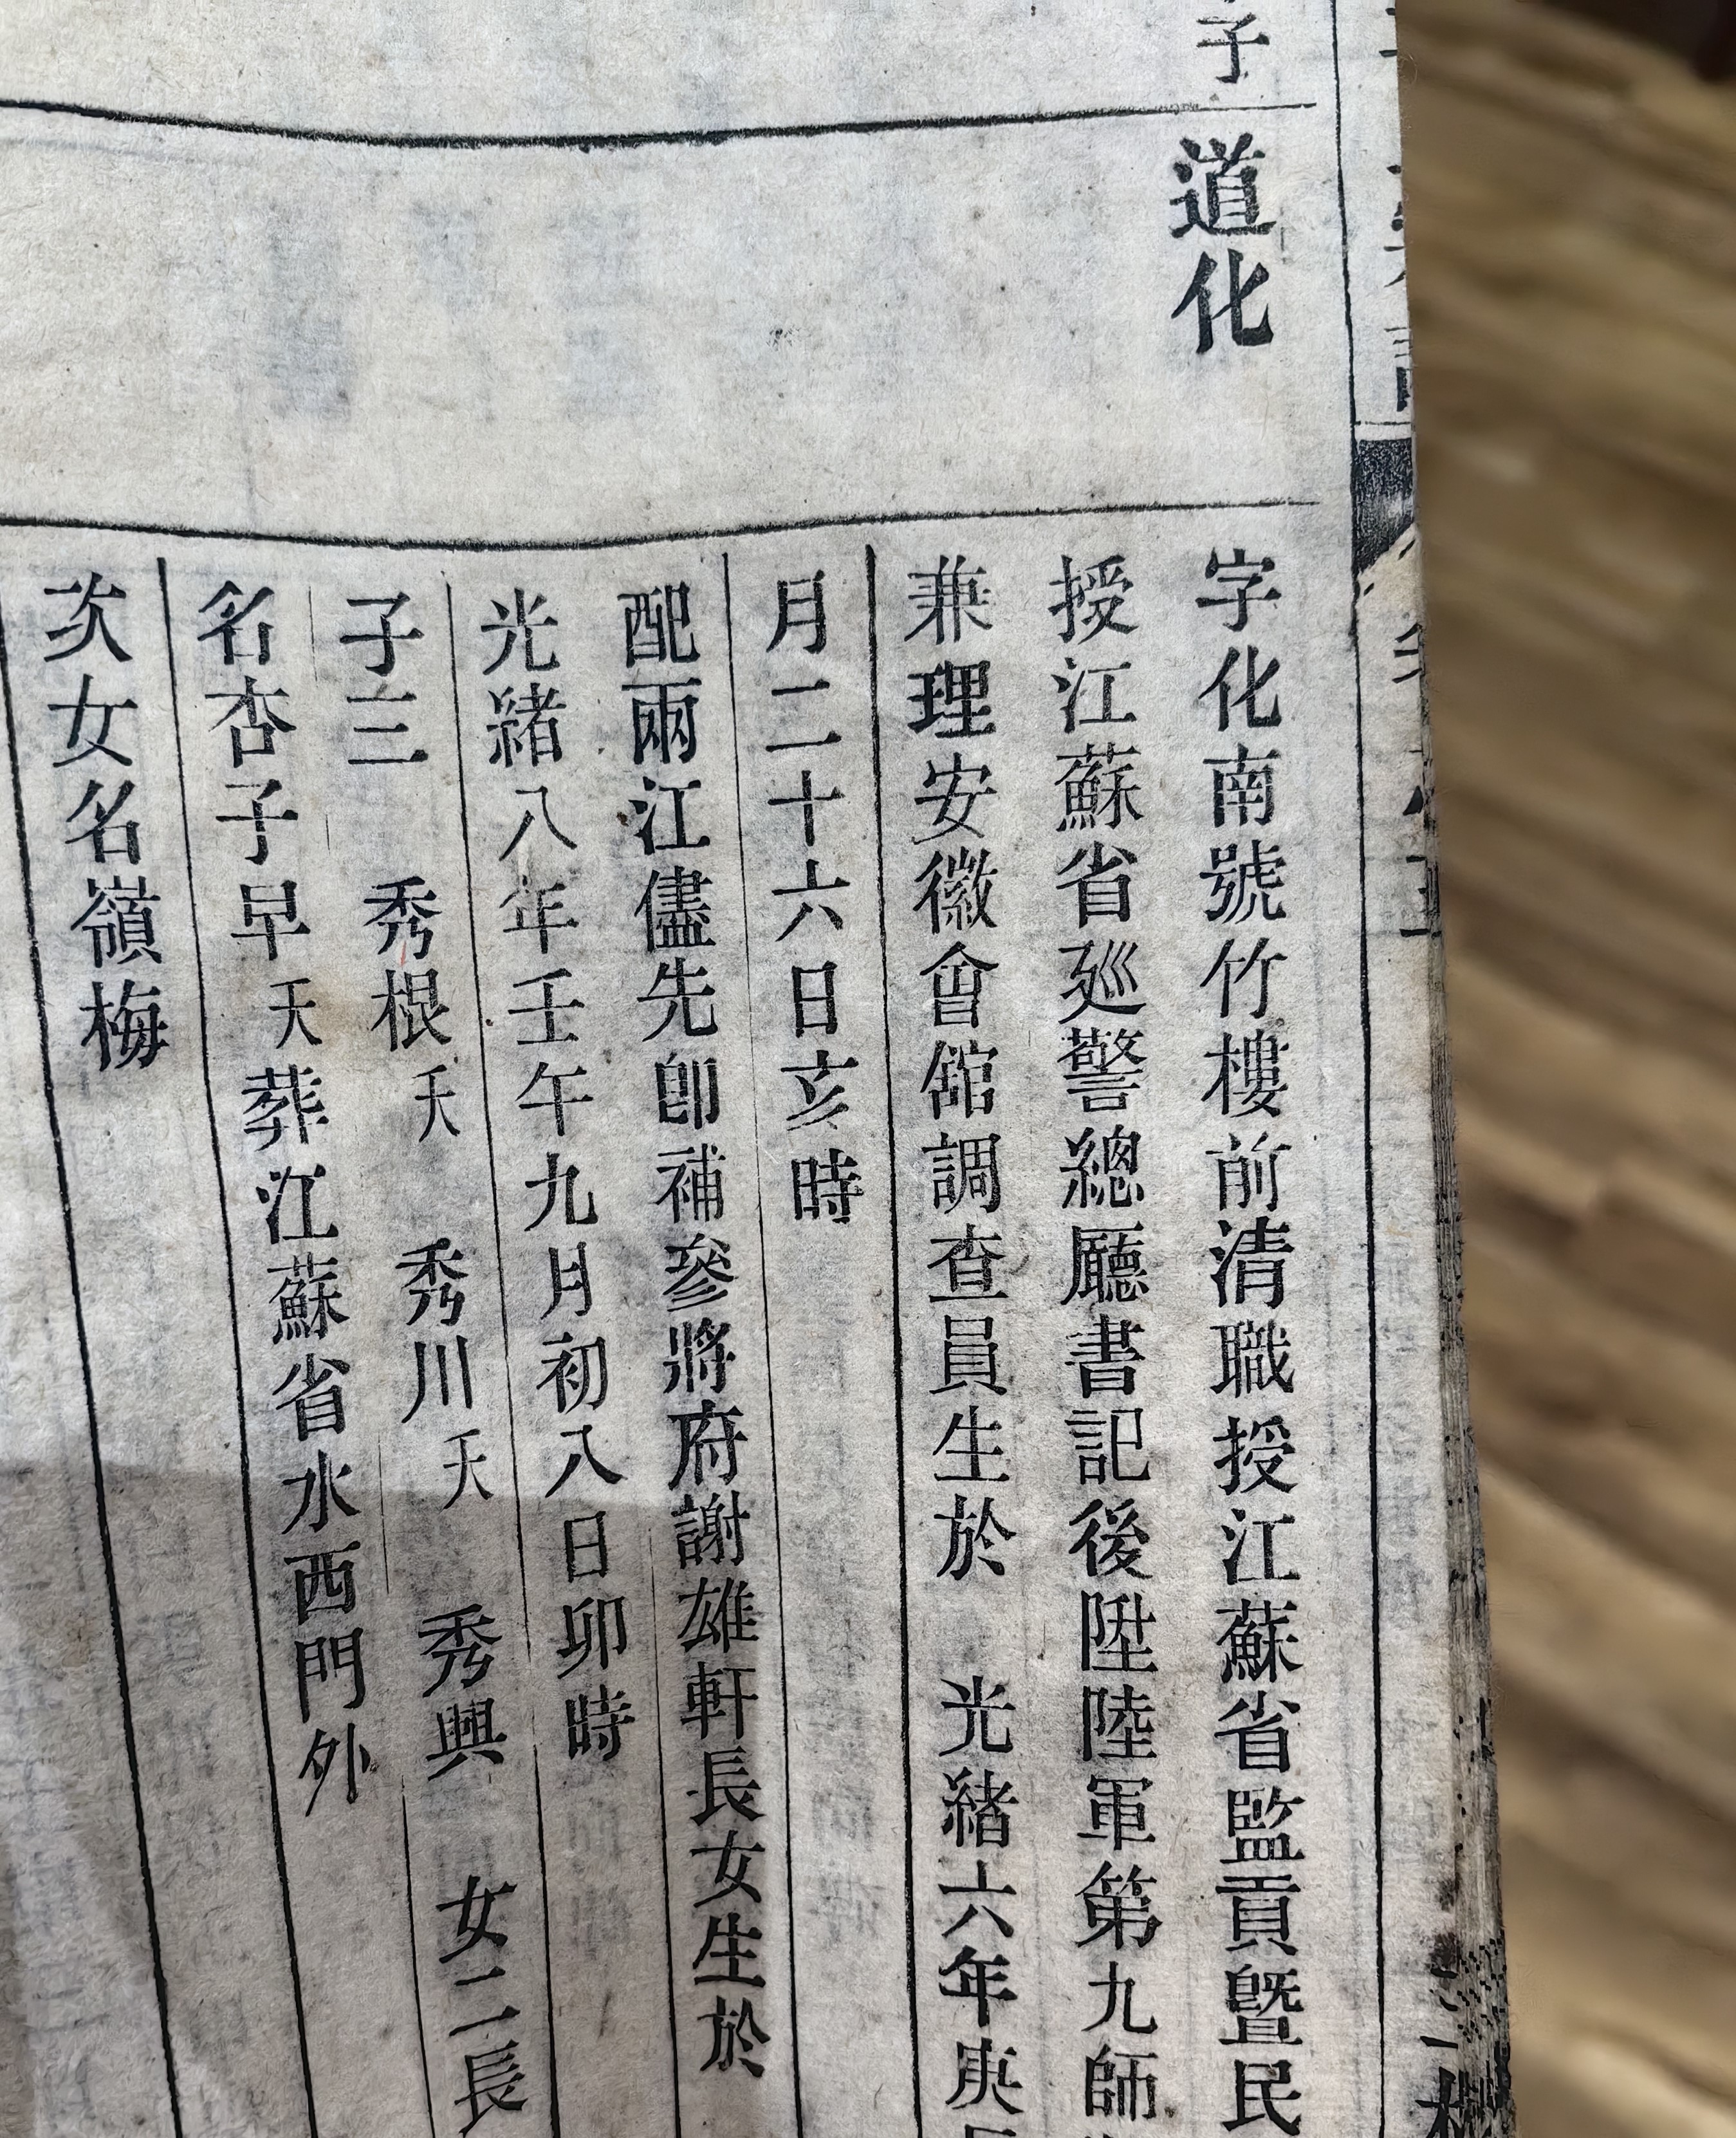 子
道化
字化南號竹樓前清職授江蘇省監貢暨民
授江蘇省廵警總廳書記後陞陸軍第九師
兼理安徽會舘調查員生於 光緒六年庚
月二十六日亥時
配兩江儘先卽補叅將府謝雄軒長女生於
光緒八年壬午九月初八日卯時
子三 秀根夭 秀川夭 秀興 女二長
名杏子早夭葬江蘇省水西門外
次女名嶺梅